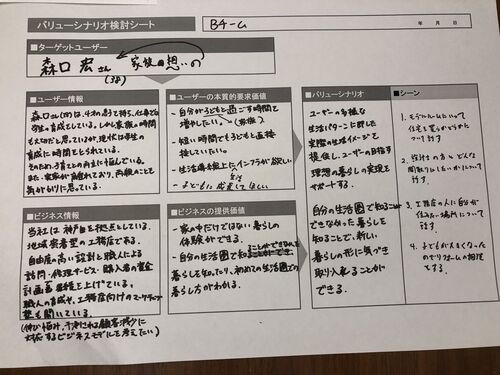 バリューシナリオ検討シート
Bチーム
年 月 日
■ターゲットユーザー
森口 宏さん 家族思いの
(38)
■ユーザー情報
森口さん(男)は、4才の子を持ち、仕事で
学生の育成をしている。しかし家族の時間
も大切だと思っているが、現状は学生の
育成に時間をとられている。
そのため、子育ての両立に悩んでいる。
また、実家が離れており、両親のことも
気がかりに思っている。
■ユーザーの本質的要求価値
・自分が子どもと過ごす時間を
増やしたい。(家族)
・短い時間でも子どもと直接
接していたい。
・生活導線上にインフラが欲しい
・子どもに成長してほしい
■バリューシナリオ
ユーザーの多様な
生活パターンに即した
実際の生活イメージを
提供し、ユーザーの目指す
理想の暮らしの実現を
サポートする。
自分の生活圏で知ること
できなかった暮らし
を知ることで、新しい
暮らしの形に気づき
取り入れることが
できる。
■シーン
1. モデルルームにいって
住宅を買うかどうかに
ついて検討
2.
間取り
について
検討
3. 工務店の人に自分が
住みたい場所について
話す
4. 子どもが大きくなった
のでリフォームの相談を
する
■ビジネス情報
当社は神戸を拠点としている。
地域密着型の工務店である。
自由度の高い設計と職人による
訪問・修理サービス・購入者の資金
計画
職人の育成や、工務店向けのマーケティング
塾も開いている。
(伸び悩み、予測される顧客減少に
対応するビジネスモデルを考えたい)
■ビジネスの提供価値
・家の中だけではない暮らしの
体験ができる。
・自分の生活圏で知ることができない
暮らしを知ったり、初めての生活圏での
暮らし方がわかる。